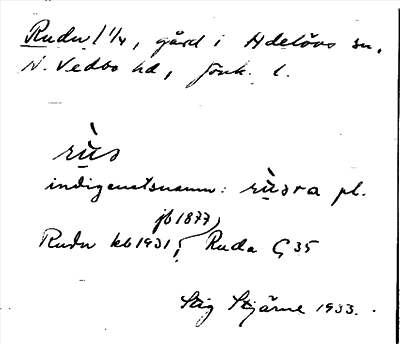 Rudu 1 1/4, gård i Adelövs sn,
N. Vedbo hd, Jönk. l.
rùs
indigenatsnamn: rùsra pl.
jb 1877
Rudu kb 1931, Ruda G 35
Stig Stjärne 1933.